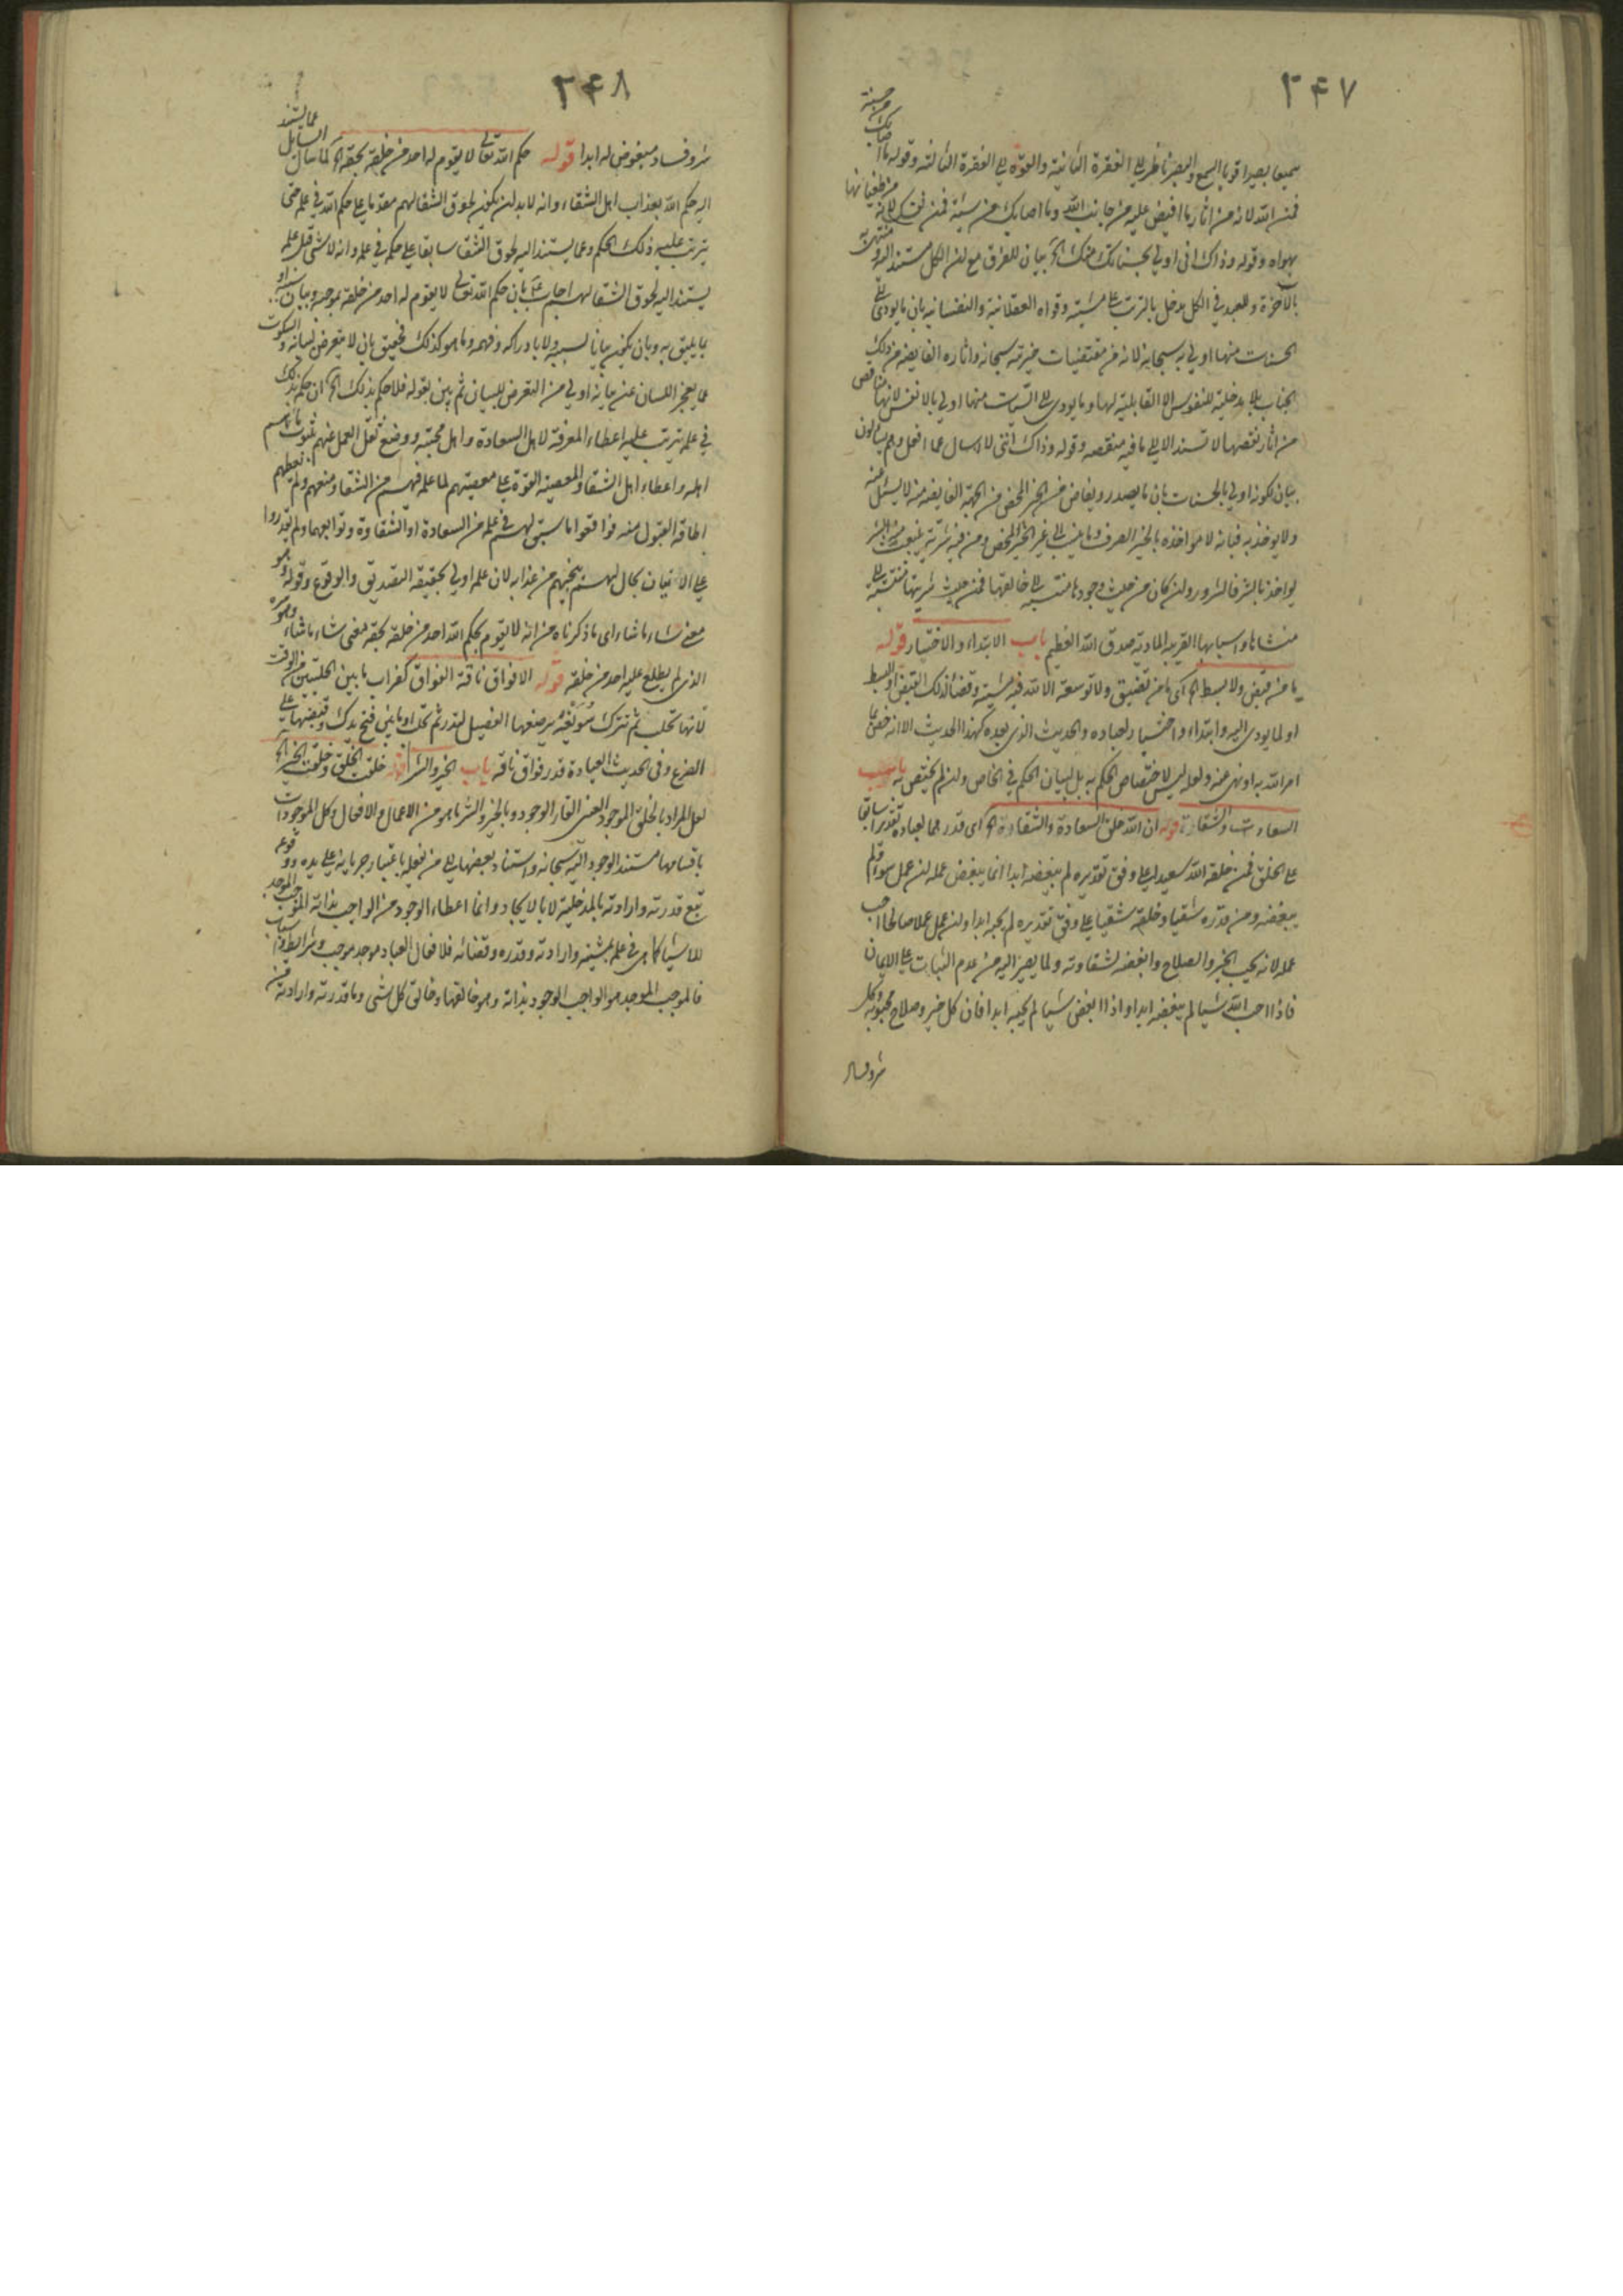 ۲۴۷
سميعا بصيرا قويا السمع والبصر ناظر الى الفقرة الثانية والقوة الى الفقرة الثالثة وقوله ما اصابك من حسنة
فمن الله لانه من اثار ما افيض عليه من جانب الله وما اصابك من سيئة فمن نفسك لانه من طغيانها
بهواه وقوله وذاك انى اولى بحسناتك منك الخ بيان للفرق مع ان الكل مستند اليه ومنته به
بالاخرة وللعبد فى الكل مدخل بالترتب على مشيته وقواه العقلانية والنفسانية بان ما يودى الى
الحسنات منها اولى به سبحانه لانه من مقتضيات خيريته سبحانه واثاره الفايضه من ذلك
الجناب بلا مدخلية للنفوس الا القابلية لها وما يودى الى السيئات منها اولى بالانفس لانها مناقص
من اثار نقصها لا تستند الا الى ما فيه منقصه وقوله وذاك اننى لا اسال عما افعل وهم يسالون
بيان لكونه اولى بالحسنات بان ما يصدر ويفاض من الخير المحض من الجهة الفايضه منه لا يسئل عنه
ولا يوخذ به فانه لا مواخذه بالخير الصرف وما ينسب الى غير الخير المحض ومن فيه شرية ينبعث منه الشر
يواخذ بالشر فالشرور وان كان من حيث وجودها منتسبة الى خالقها فمن حيث شريتها منتسبة الى
منشاها واسبابها القريبة المادية صدق الله العظيم باب الابتلاء والاختبار قوله
ما من قبض ولا بسط الخ اى ما من تضييق ولا توسعة الا لله فيه مشية وقضاء لذلك القبض او البسط
او لما يودى اليه وابتلاء واختبار لعباده والحديث الذى بعده كهذا الحديث الا انه خص بما
امر الله به او نهى عنه ولعله ليس لاختصاص الحكم به بل لبيان الحكم فى الخاص وان لم يختص به باب
السعادة والشقاوة قوله ان الله خلق السعادة والشقاوة الخ اى قدرهما لعباده تقديرا سابقا
على الخلق فمن خلقه الله سعيدا على وفق تقديره لم يبغضه ابدا انما يبغض عمله ان عمل سوءا ولم
يبغضه ومن قدره شقيا وخلقه شقيا على وفق تقديره لم يحبه ابدا وان عمل عملا صالحا احب
عمله لانه يحب الخير والصلاح وابغضه لشقاوته ولما يصير اليه من عدم الثبات على الايمان
فاذا احب الله شيئا لم يبغضه ابدا واذا ابغض شيئا لم يحبه ابدا فان كل خير وصلاح محبوبه وكل
شر وفساد
۲۴۸
شر وفساد مبغوض له ابدا قوله حكم الله تعالى لا يقوم له احد من خلقه بحقه الخ لما سال السايل عما يستند
اليه حكم الله بعذاب اهل الشقاء وانه لا بد ان يكون لحوق الشقا لهم مقدما على حكم الله فى علمه حتى
يترتب عليه ذلك الحكم وعما يستند اليه لحوق الشقا سابقا على حكمه فى علمه وانه لا شى قبل علمه
يستند اليه لحوق الشقا لهم اجاب بان حكم الله تعالى لا يقوم له احد من خلقه بموجبه وبيان
بما يليق به وبان يكون بيانا لسببه ولا بادراكه وفهمه وما هو كذلك فحقيق بان لا يتعرض لبيانه والسكوت
عما يعجز اللسان عن بيانه اولى من التعرض للبيان ثم بين بقوله فلما حكم بذلك الخ ان حكمه بذلك
فى علمه يترتب عليه اعطاء المعرفة لاهل السعادة واهل محبته ووضع ثقل العمل عنهم بثبوت ما هم
اهله واعطاء اهل الشقا والمعصية القوة على معصيتهم لما علمه فيهم من الشقا ومنعهم ولم يعطهم
اطاقة القبول منه فوافقوا ما سبق لهم فى علمه من السعادة او الشقاوة وتوابعهما ولم يقدروا
على الاتيان بحال لهم تنجيهم من عذابه لان علمه اولى بحقيقة التصديق والوقوع وقوله وهو
معنى شاء ما شاء اى ما ذكرناه من انه لا يقوم بحكم الله احد من خلقه بحقه معنى شاء ما شاء وهو سره
الذى لم يطلع عليه احد من خلقه قوله الا فواق ناقة الفواق كغراب ما بين الحلبتين من الوقت
لانها تحلب ثم تترك سويعة يرضعها الفصيل لتدر ثم تحلب او ما بين فتح يدك وقبضها على
الضرع وفى الحديث العيادة قدر فواق ناقة باب الخير والشر قوله خلقت الخلق وخلقت الخير الخ
لعل المراد بالخلق الموجود العينى القار الوجود وبالخير والشر ما هو من الاعمال والافعال وكل الموجودات
باقسامها مستند الوجود اليه سبحانه واستناد بعضها الى من يفعله باعتبار جريانه على يده ووقوعه
تبع قدرته وارادته بالمدخلية لا بالايجاد وانما اعطاء الوجود من الواجب بذاته الموجب الموجد
للاشياء كما هى فى علمه بمشيته وارادته وقدره وقضائه فلافعال العباد موجد موجب وشرايط واسباب
فالموجب الموجد هو الواجب الوجود بذاته وهو خالقها وخالق كل شى وما قدرته وارادته من